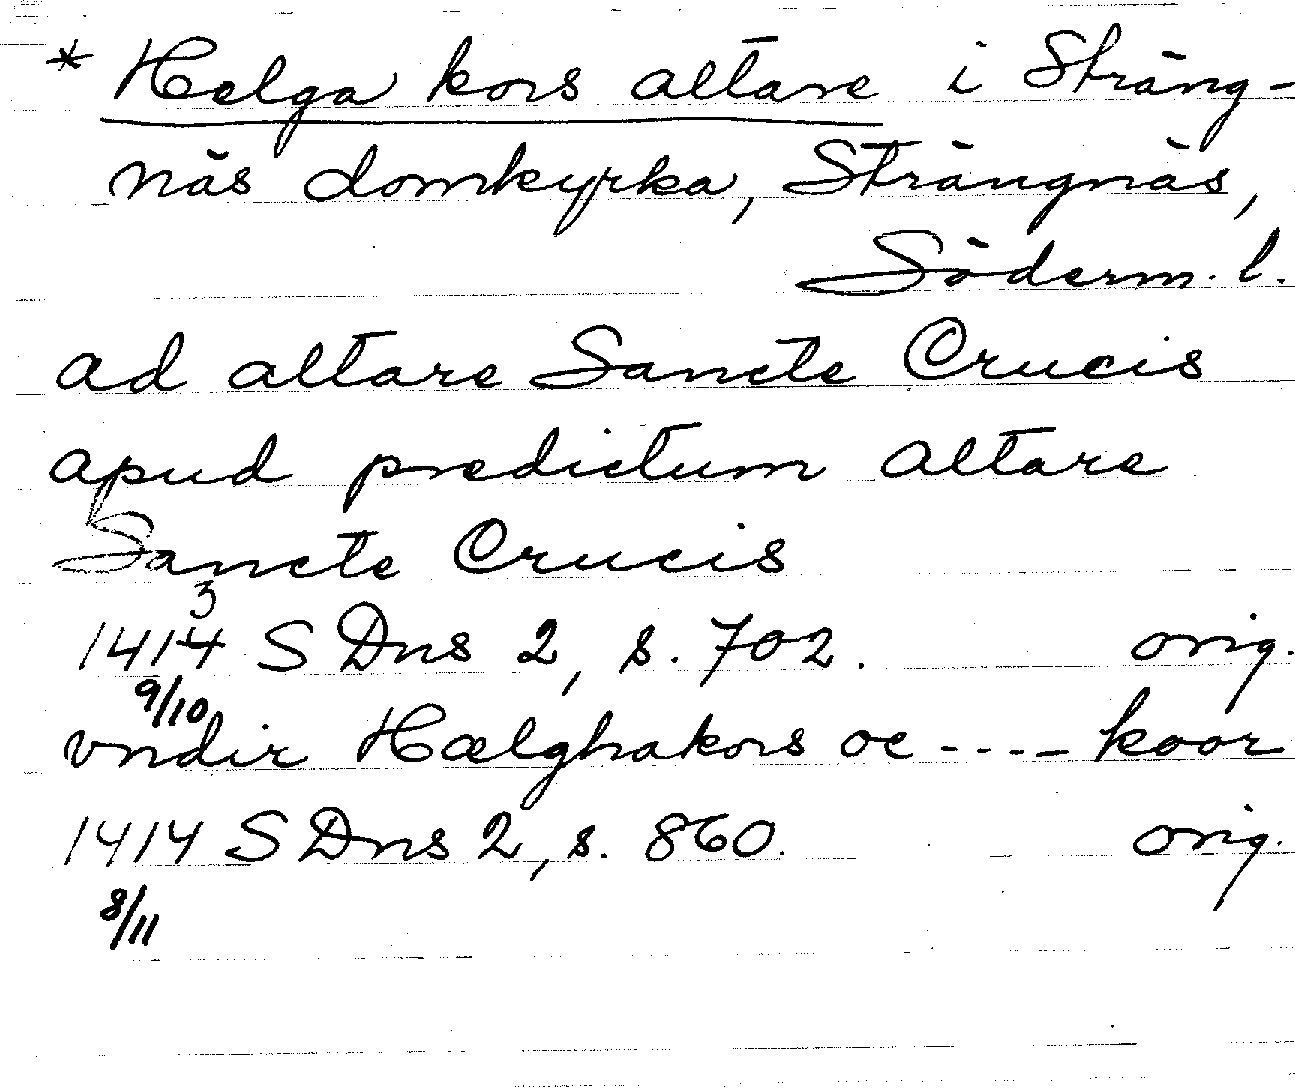 * Helga kors altare i Sträng-
näs domkyrka, Strängnäs,
Söderm. l.
ad altare Sancte Crucis
apud predictum altare
Sancte Crucis
3
1414 SDns 2, s. 702. orig.
9/10
vndir Hælghakors oc ---- koor
1414 SDns 2, s. 860. orig.
8/11